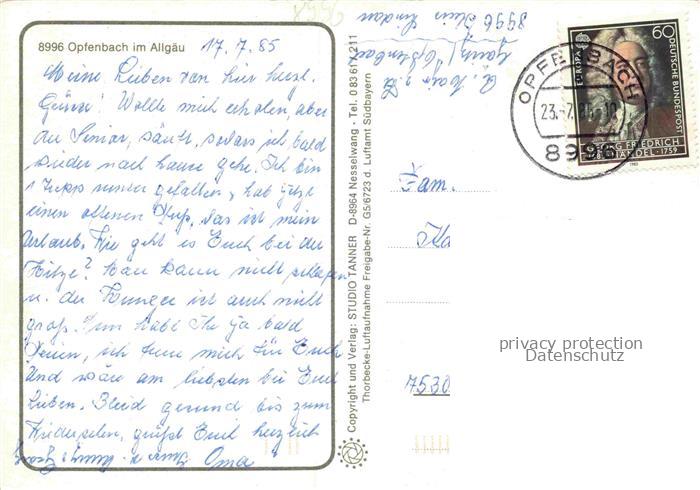 8996 Opfenbach im Allgäu
17.7.85
Meine Lieben von hier herzl.
Grüsse! Wollte mich erholen, aber
der Senior, säuft, sodass ich bald
wieder nach hause gehe. Ich bin
1 Trepp runter gefallen, hab jetzt
einen offenen Kopf, das ist mein
Urlaub. Wie geht es Euch bei der
Hitze? Man kann nicht schlafen
u. der Hunger ist auch nicht
groß. Nun habt Ihr ja bald
Ferien, ich freu mich für Euch
Und wäre am liebsten bei Euch
Lieben. Bleibt gesund bis zum
Wiedersehen, grüßt Euch herzlich
Oma
Copyright und Verlag: STUDIO TANNER D-8964 Nesselwang - Tel. 0 83 61 / 211
Thorbecke-Luftaufnahme Freigabe-Nr. G5/6723 d. Luftamt Südbayern
8996
OPFENBACH
23.-7.85-10
8996
EUROPA
60
DEUTSCHE BUNDESPOST
GEORG FRIEDRICH
HÄNDEL 1759
Fam.
7530
privacy protection
Datenschutz